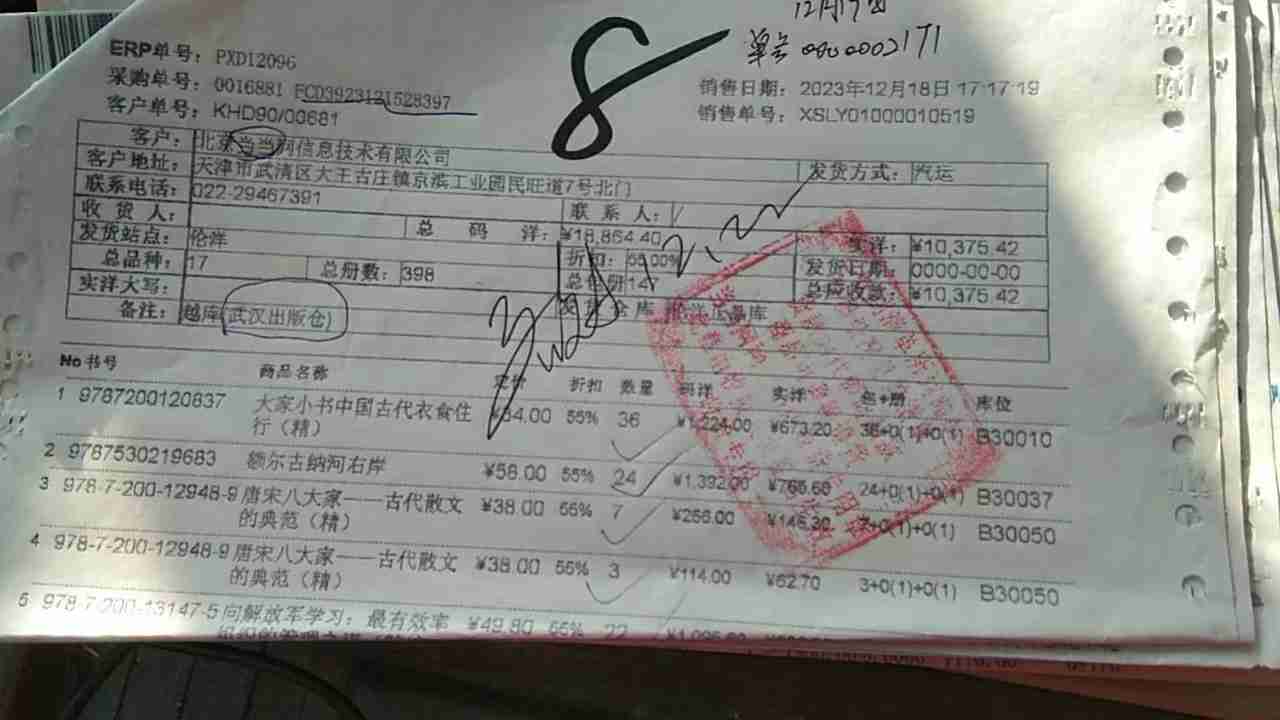 12月19日
单号 0900002171
8
ERP单号: PXD12096
采购单号: 0016881 FCD3923121528397
销售日期: 2023年12月18日 17:17:19
客户单号: KHD90/00681
销售单号: XSLY01000010519
客户: 北京当当网信息技术有限公司
客户地址: 天津市武清区大王古庄镇京滨工业园民旺道7号北门 发货方式: 汽运
联系电话: 022-29467391 联系人:
收货人: 总码洋: ¥18,864.40 实洋: ¥10,375.42
发货站点: 伦洋 折扣: 55.00% 发货日期: 0000-00-00
总品种: 17 总册数: 398 14 总应收款: ¥10,375.42
实洋大写: 发货仓库 伦洋正品库
备注: 越库(武汉出版仓)
12.22
No 书号 商品名称 定价 折扣 数量 码洋 实洋 包+册 库位
1 9787200120837 大家小书中国古代衣食住 ¥34.00 55% 36 ¥1,224.00 ¥673.20 36+0(1)+0(1) B30010
行（精）
2 9787530219683 额尔古纳河右岸 ¥58.00 55% 24 ¥1,392.00 ¥765.60 24+0(1)+0(1) B30037
3 978-7-200-12948-9 唐宋八大家——古代散文 ¥38.00 55% 7 ¥266.00 ¥146.30 7+0(1)+0(1) B30050
的典范（精）
4 978-7-200-12948-9 唐宋八大家——古代散文 ¥38.00 55% 3 ¥114.00 ¥62.70 3+0(1)+0(1) B30050
的典范（精）
5 978-7-200-13147-5 向解放军学习：最有效率 ¥49.80 55% 22